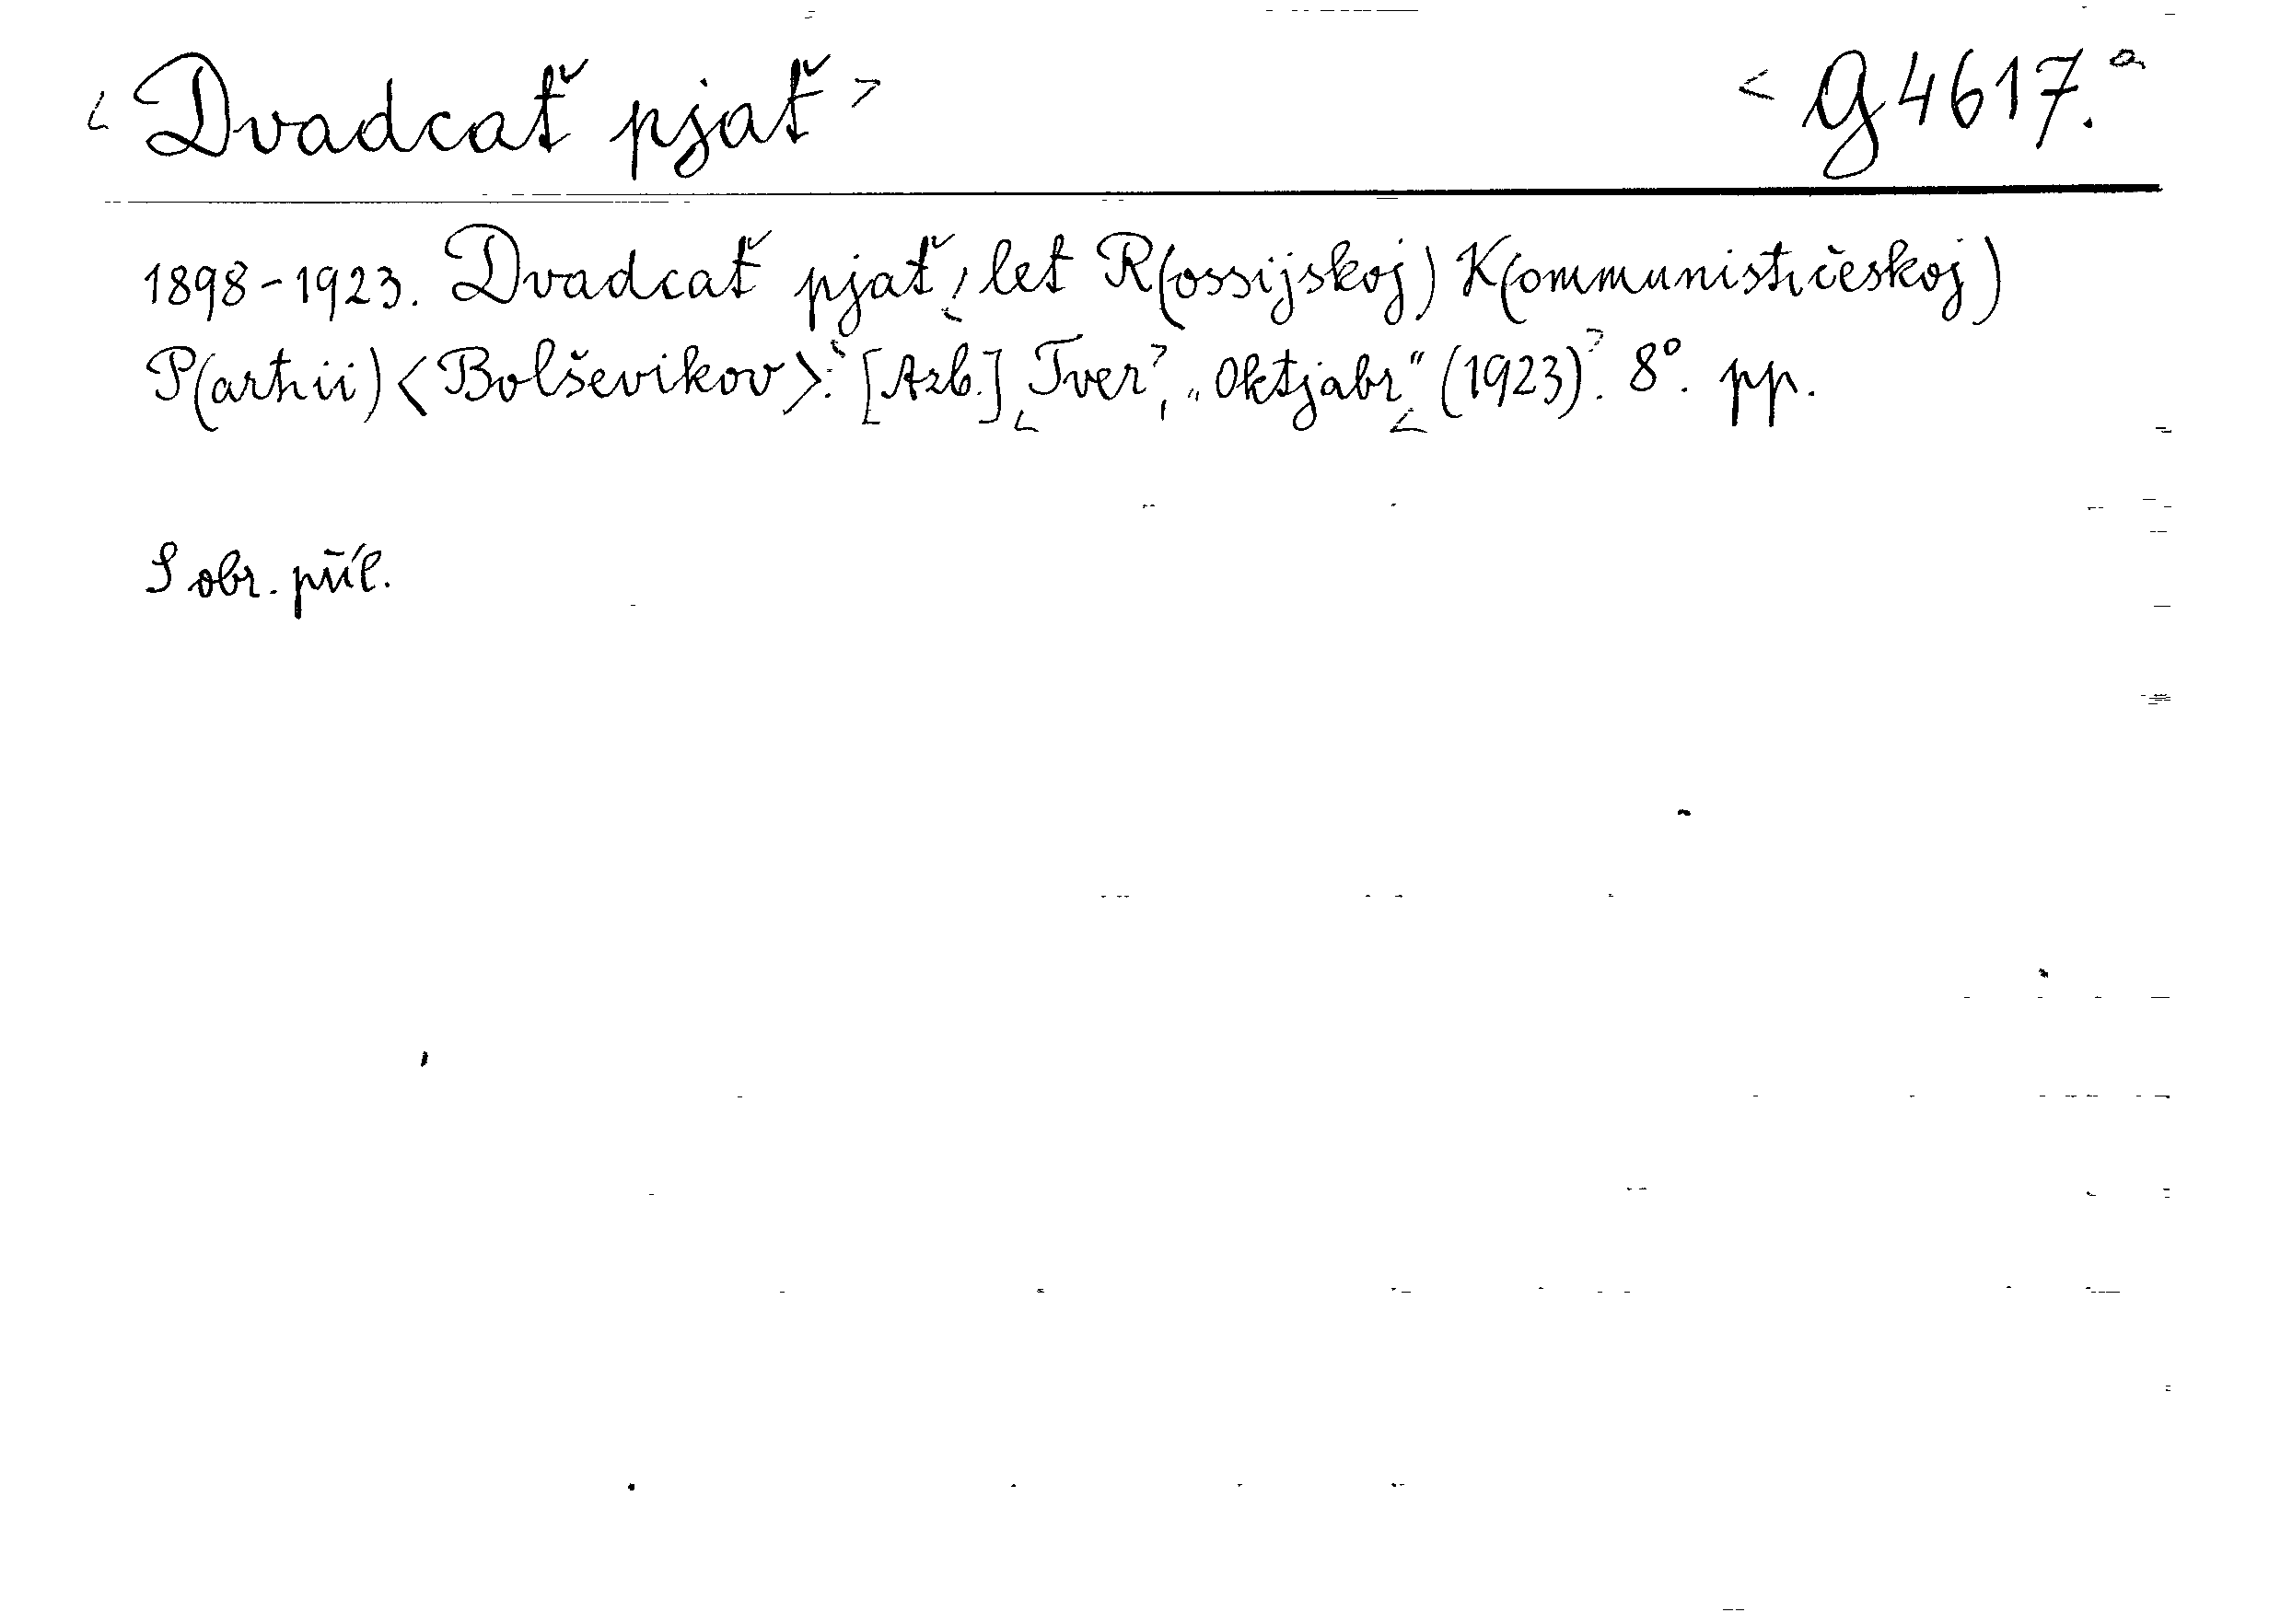 <Dvadcať pjať> <G 4617.a
1898-1923. Dvadcať pjať let R(ossijskoj) K(ommunističeskoj)
P(artii) <Bolševikov>. [Azb.] Tveř, „Oktjabr“ (1923). 8°. pp.
S obr. příl.